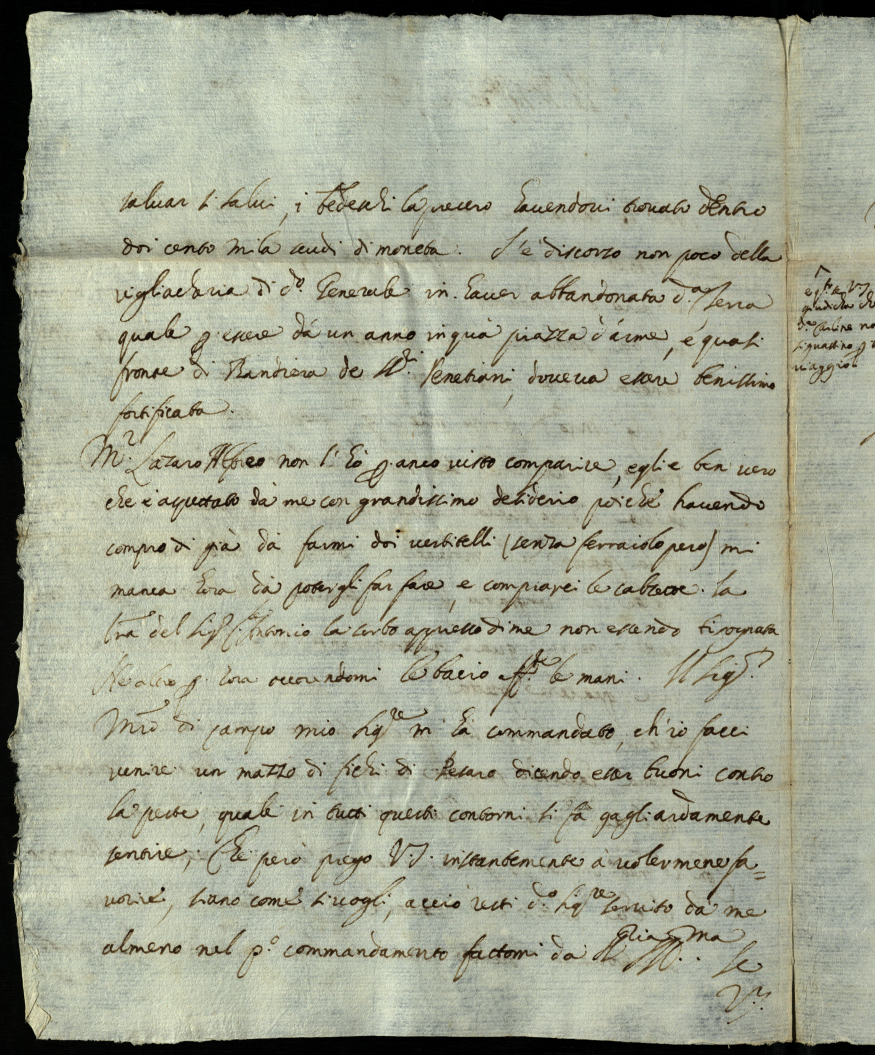 salvar si salvi, i Tedeschi la presero havendovi trovato dentro
doi cento mila scudi di moneta. S'è discorso non poco della
vigliacharia di d.º Generale in haver abbandonata d.ª Terra
quale p essere dà un anno in quà piazza d'arme, e quasi
fronte di Bandiera de SS.ri Venetiani, doveva essere benissimo
fortificata.
M.r Lazaro non l'hò p anco visto comparire, egli è ben vero
che è aspettato dà me con grandissimo desiderio poichè havendo
compro di già da farmi doi vestitelli (senza ferraiolo però) mi
manca hora dà potergli far fare, e comprarei le calzette. la
lra del Sig.r Antonio la serbo appresso di me non essendo bisognata
Ne altro p hora occorrendomi le bacio aff.te le mani. Il Sig.r
Mro di campo mio Sig.re mi hà commandato, ch'io facci
venire un mazzo di fichi di Pesaro dicendo esser buoni contro
la peste, quale in tutti questi contorni si fà gagliardamente
sentire, Che però prego V.S. instantemente à volermene fa=
vorire, siano come si vogli, acciò resti d.º Sig.re servito da me
almeno nel p.º commandamento fattomi da
Se
V.S.
e
V.S.
giudica che
no
viaggio